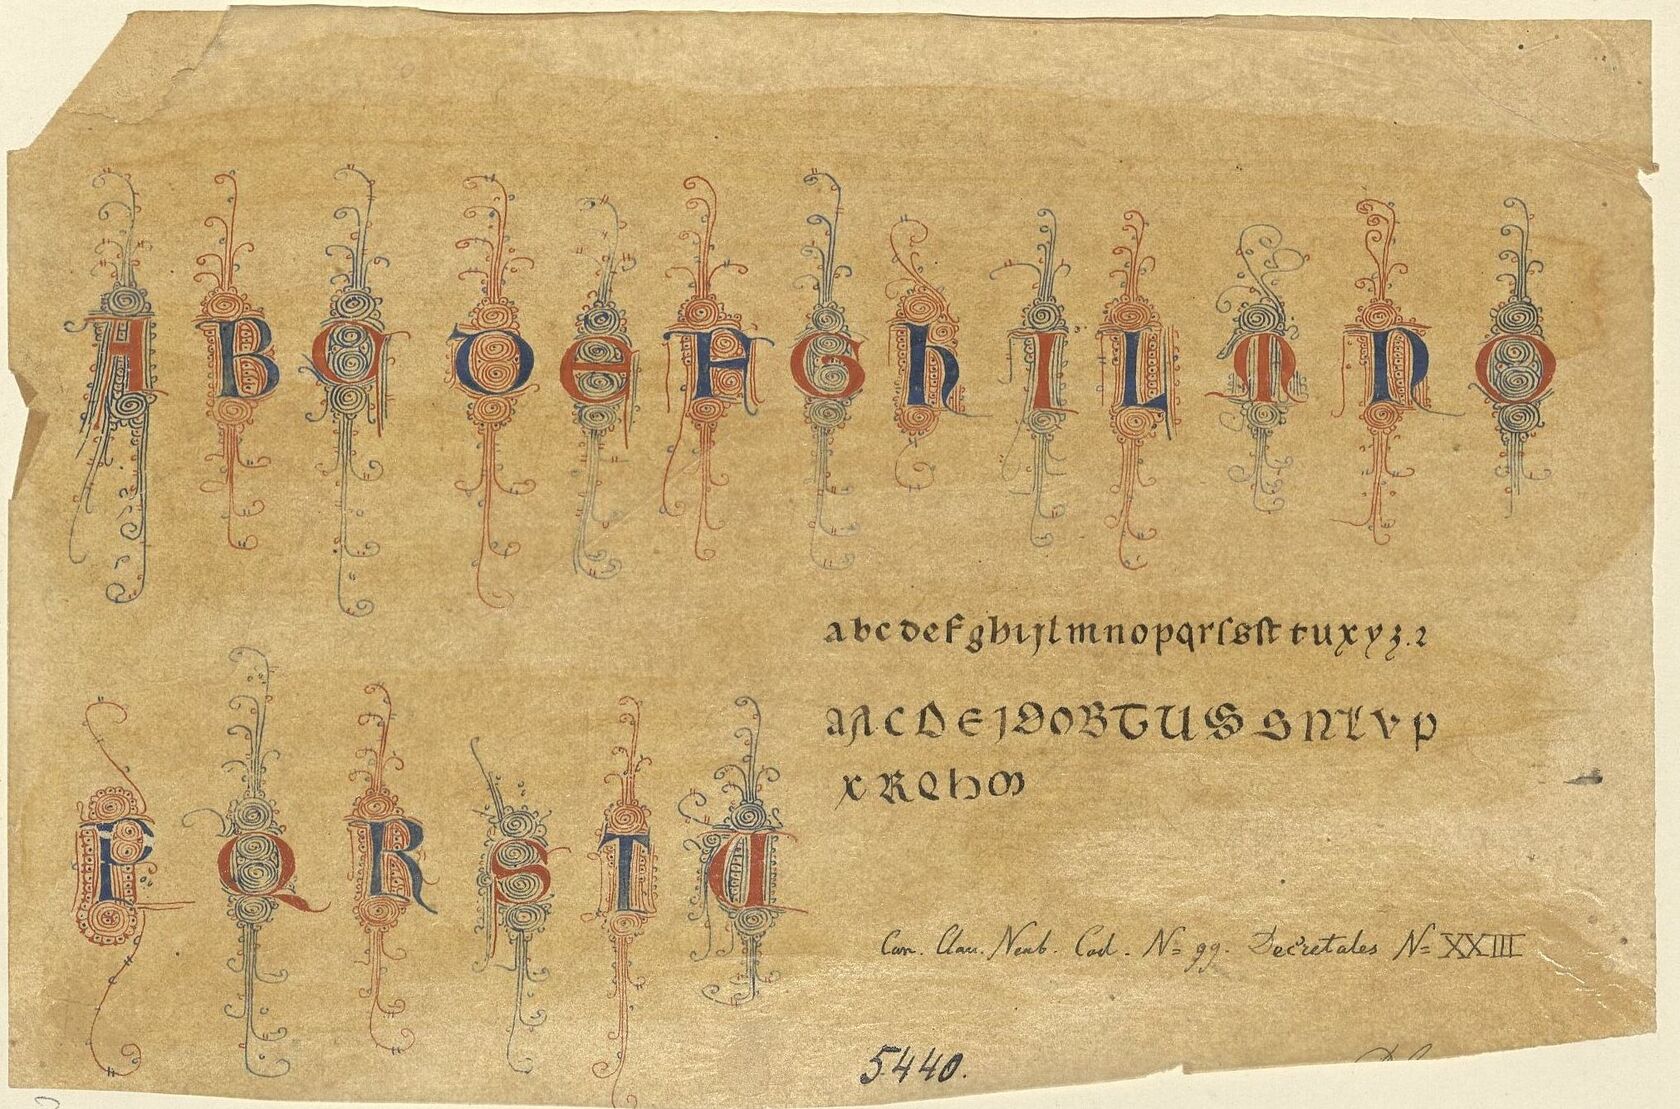 A B C D E F G h I L M N O
a b c d e f g h i j l m n o p q r ſ s ſt t u x y z . 2
a A C D E J D O B T U S S N L v p
x R Q h M
P Q R S T U
Can. Clau. Neub. Cod. N= 99. Decretales N= XXIII
5440.